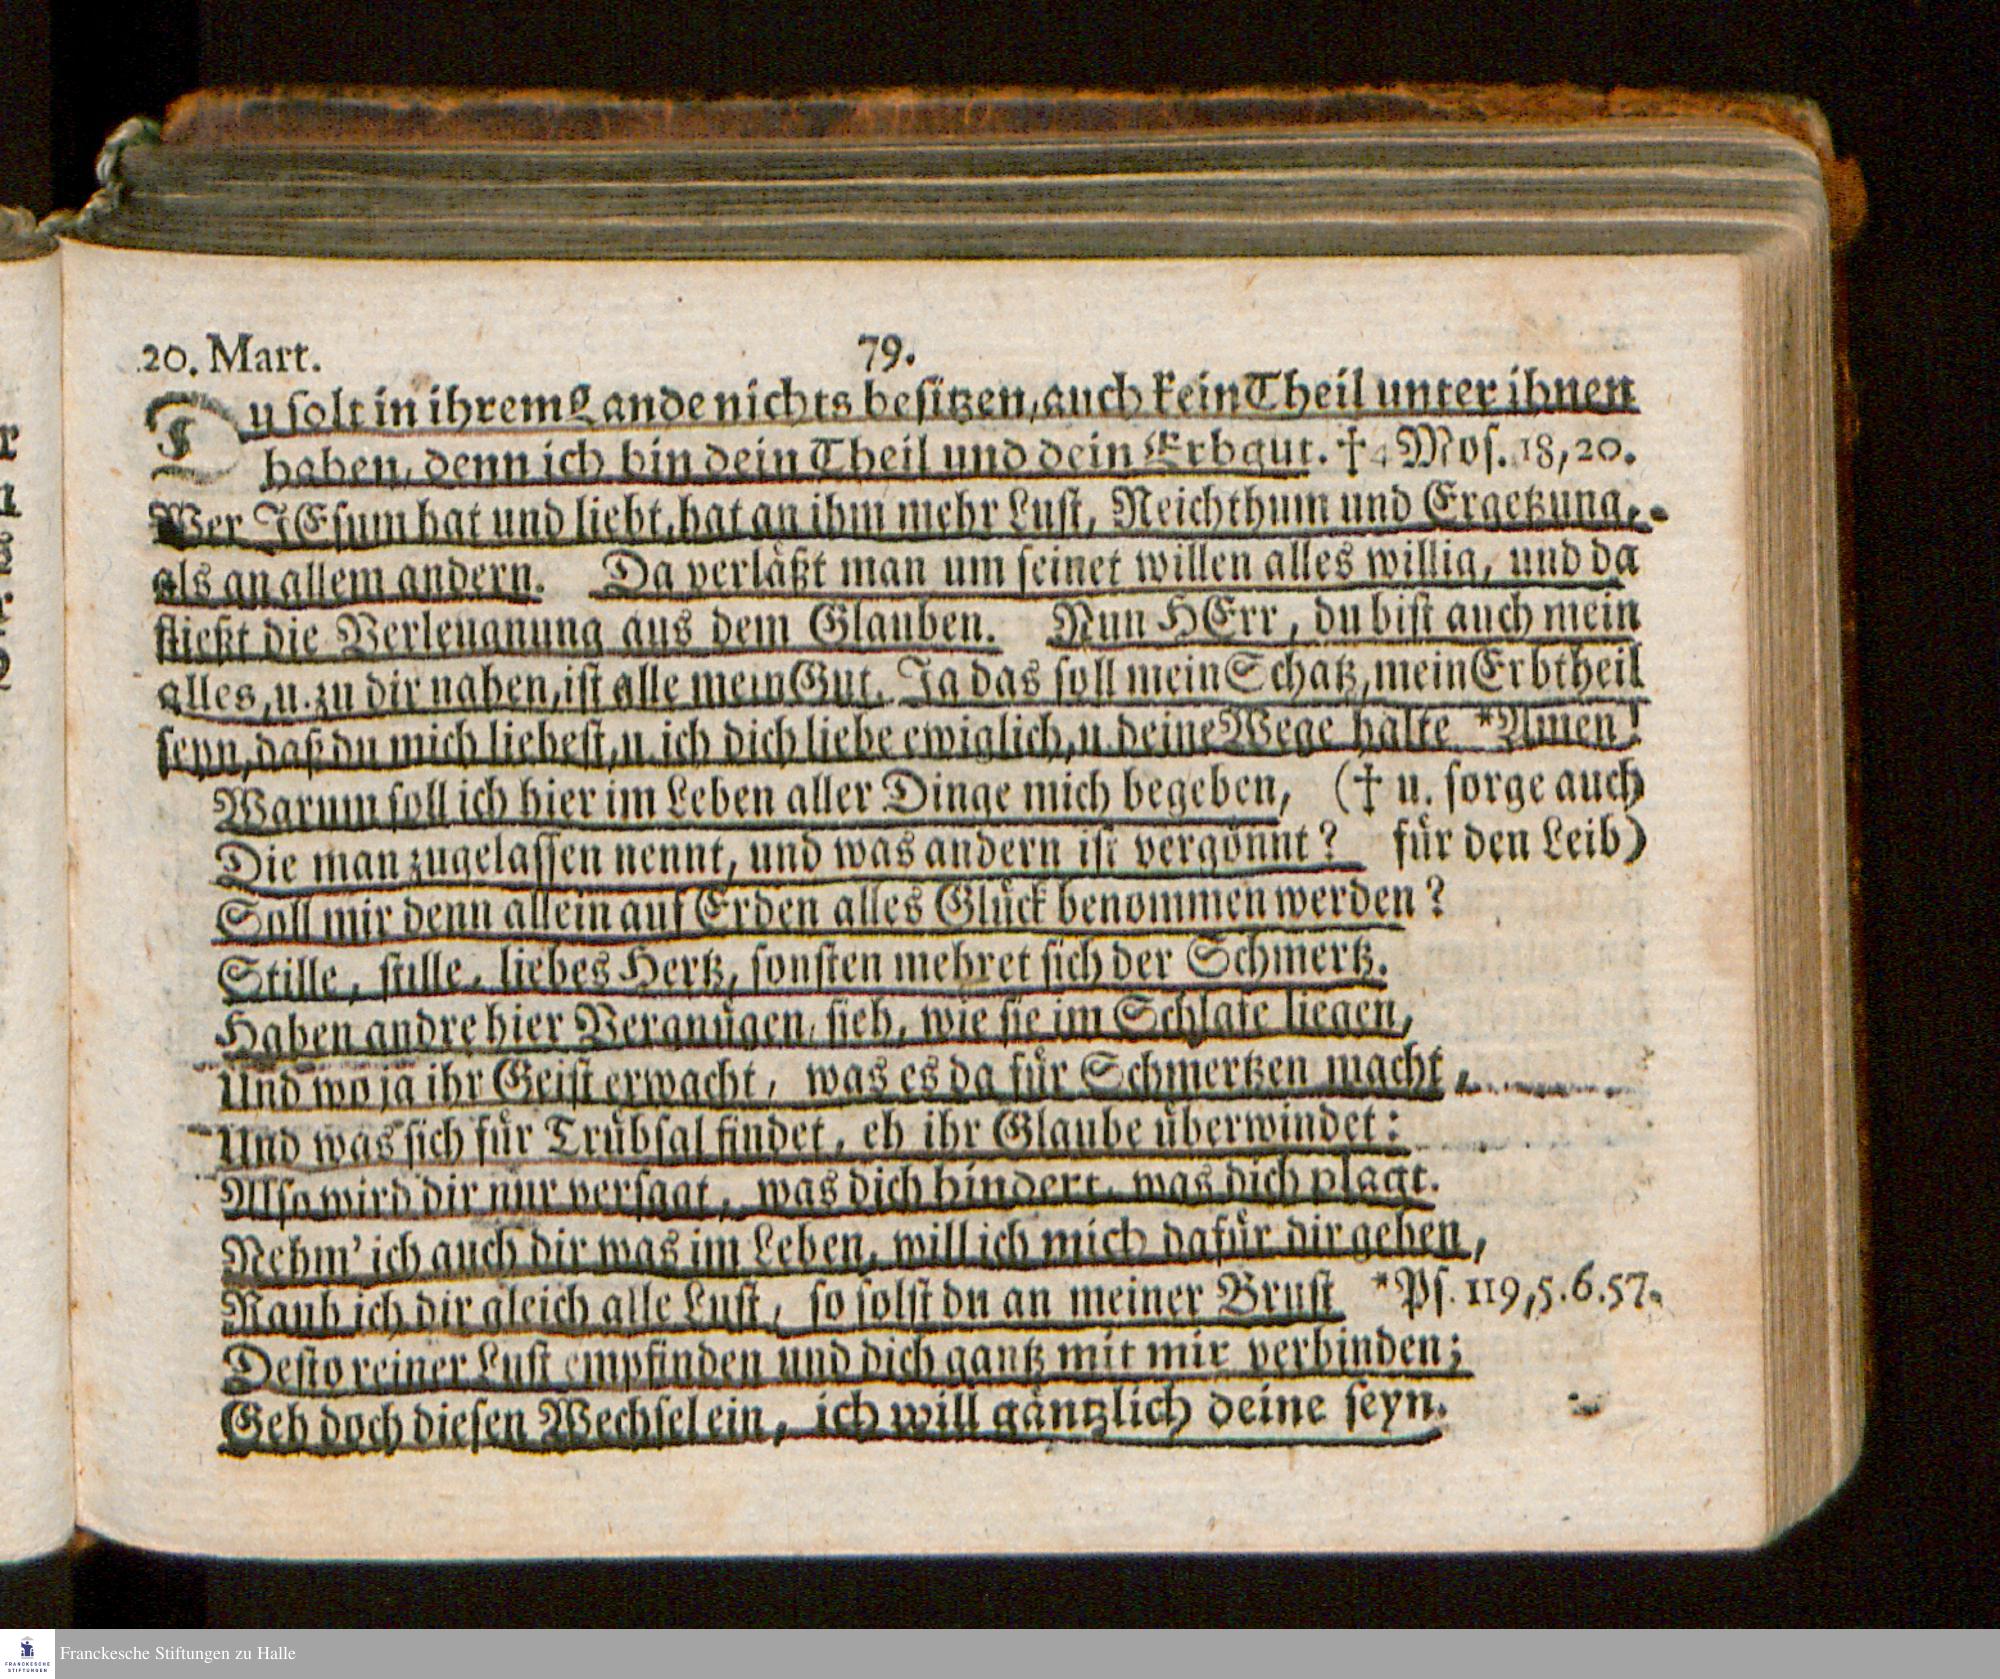 20. Mart. 79.
Du solt in ihrem Lande nichts besitzen, auch kein Theil unter ihnen
haben, denn ich bin dein Theil und dein Erbgut. † 4 Mos. 18, 20.
Wer JEsum hat und liebt, hat an ihm mehr Lust, Reichthum und Ergetzung,
als an allem andern. Da verläßt man um seinet willen alles willig, und da
fließt die Verleugnung aus dem Glauben. Nun HErr, du bist auch mein
alles, u. zu dir nahen, ist alle mein Gut. Ja das soll mein Schatz, mein Erbtheil
seyn, daß du mich liebest, u. ich dich liebe ewiglich, u. deine Wege halte *Amen!
Warum soll ich hier im Leben aller Dinge mich begeben, († u. sorge auch
Die man zugelassen nennt, und was andern ist vergönnt? für den Leib)
Soll mir denn allein auf Erden alles Glück benommen werden?
Stille, stille, liebes Hertz, sonsten mehret sich der Schmertz.
Haben andre hier Vergnügen, sieh, wie sie im Schlafe liegen,
Und wo ja ihr Geist erwacht, was es da für Schmertzen macht,
Und was sich für Trübsal findet, eh ihr Glaube überwindet:
Also wird dir nur versagt, was dich hindert, was dich plagt.
Nehm' ich auch dir was im Leben, will ich mich dafür dir geben,
Raub ich dir gleich alle Lust, so solst du an meiner Brust *Ps. 119, 5. 6. 57.
Desto reiner Lust empfinden und dich gantz mit mir verbinden;
Geh doch diesen Wechsel ein, ich will gäntzlich deine seyn.
FRANCKESCHE
STIFTUNGEN
Franckesche Stiftungen zu Halle